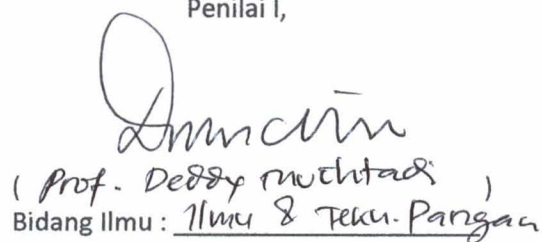 Penilai I,
( Prof. Deddy Muchtadi )
Bidang Ilmu : Ilmu & Tekn. Pangan